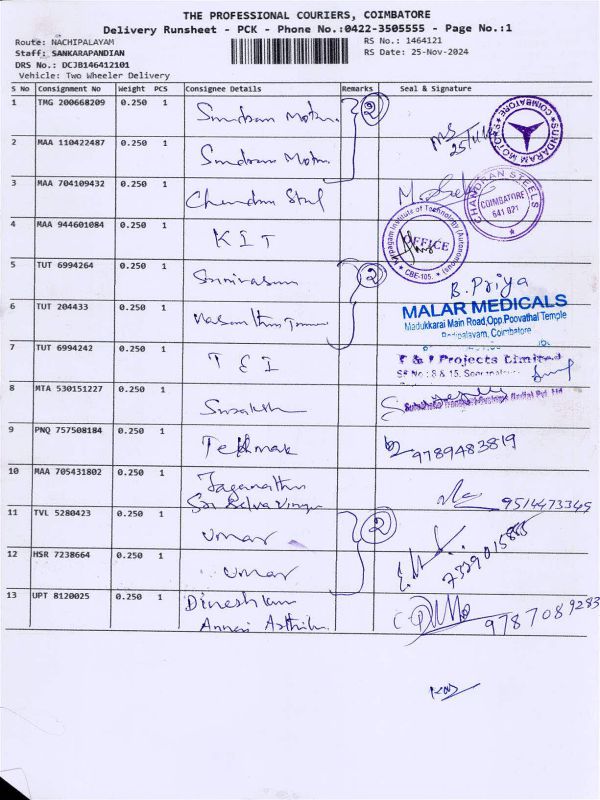 THE PROFESSIONAL COURIERS, COIMBATORE
Delivery Runsheet - PCK - Phone No.:0422-3505555 - Page No.:1
Route: NACHIPALAYAM
RS No.: 1464121
Staff: SANKARAPANDIAN
RS Date: 25-Nov-2024
DRS No.: DCJB146412101
Vehicle: Two Wheeler Delivery
S No Consignment No Weight PCS Consignee Details Remarks Seal & Signature
1 TMG 200668209 0.250 1 Sundram Motors 2
SUNDARAM MOTORS COIMBATORE
2 MAA 110422487 0.250 1 Sundram Motors
3 MAA 704109432 0.250 1 Chandran Steel
CHANDRAN STEELS COIMBATORE 641 021
4 MAA 944601084 0.250 1 KIT
Institute of Technology (Autonomous) OFFICE CBE-105.
5 TUT 6994264 0.250 1 Srinivasan 2
B. Priya
6 TUT 204433 0.250 1
MALAR MEDICALS
Madukkarai Main Road,Opp.Poovathal Temple
Coimbatore
7 TUT 6994242 0.250 1 T E I
Projects Limited
SF No : 8 & 15.
8 MTA 530151227 0.250 1
9 PNQ 757508184 0.250 1 Tekmak 9789483819
10 MAA 705431802 0.250 1 Jaganathan
Sri Selva Vinayaga 9514473345
11 TVL 5280423 0.250 1 Umar 2
7339015883
12 HSR 7238664 0.250 1 Umar
13 UPT 8120025 0.250 1 Dinesh
Annai 9787089283